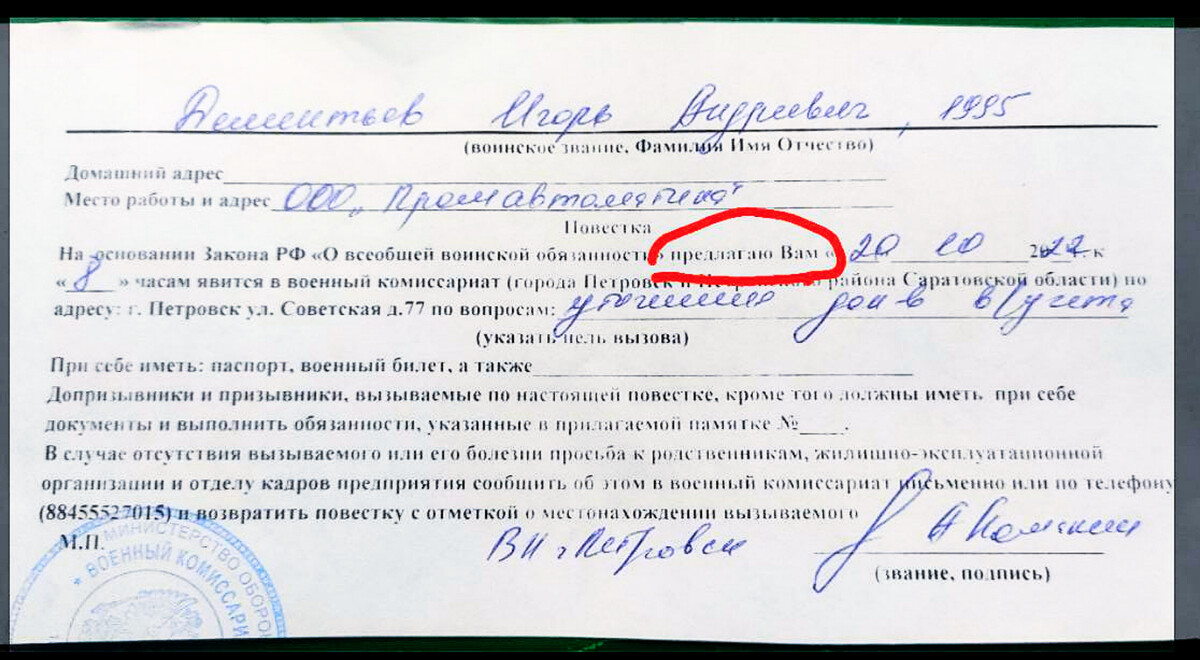 Дементьев Игорь Андреевич, 1995
(воинское звание, Фамилия Имя Отчество)
Домашний адрес
Место работы и адрес ООО „Промавтоматика"
Повестка
На основании Закона РФ «О всеобщей воинской обязанность» предлагаю Вам « 20 10 2022 к
« 8 » часам явится в военный комиссариат (города Петровск и Петровского района Саратовской области) по
адресу: г. Петровск ул. Советская д.77 по вопросам: уточнения дан в/учета
(указать цель вызова)
При себе иметь: паспорт, военный билет, а также
Допризывники и призывники, вызываемые по настоящей повестке, кроме того должны иметь при себе
документы и выполнить обязанности, указанные в прилагаемой памятке №____.
В случае отсутствия вызываемого или его болезни просьба к родственникам, жилищно-эксплуатационной
организации и отделу кадров предприятия сообщить об этом в военный комиссариат письменно или по телефону
(88455527015) и возвратить повестку с отметкой о местонахождении вызываемого
М.П. ВК г Петровск
(звание, подпись)
МИНИСТЕРСТВО ОБОРО
* ВОЕННЫЙ КОМИССАРИ